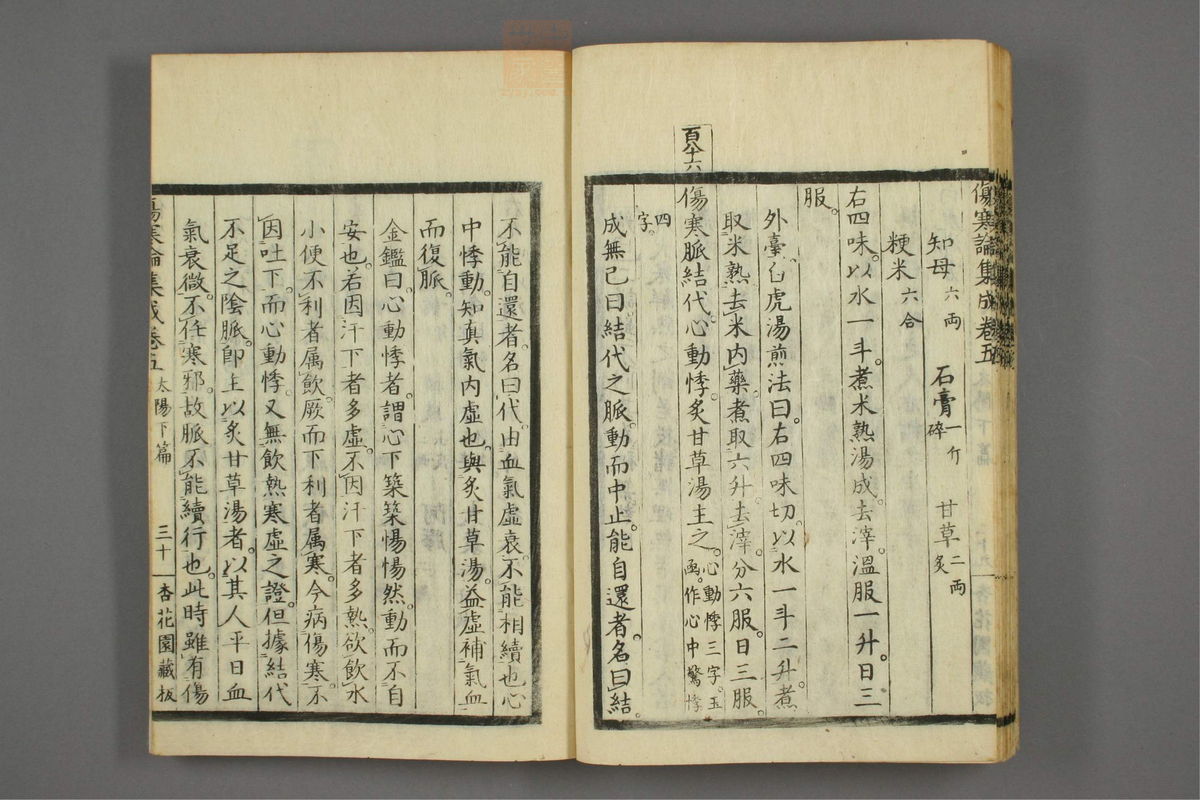 傷寒論集成卷五
知母六両 石膏一斤碎 甘草二両炙
粳米六合
右四味。以水一斗。煮米熟湯成。去滓。溫服一升。日三
服。
外臺。白虎湯煎法曰。右四味切。以水一斗二升。煮
取米熟。去米內藥。煮取六升。去滓。分六服。日三服。
百八十六
傷寒脈結代。心動悸。炙甘草湯主之。心動悸三字。玉函。作心中驚悸
四字。
成無已曰結代之脈。動而中止。能自還者。名曰結。
不能自還者。名曰代。由血氣虛衰。不能相續也。心
中悸動。知真氣內虛也。與炙甘草湯。益虛補氣血
而復脈。
金鑑曰。心動悸者。謂心下築築惕惕然。動而不自
安也。若因汗下者多虛。不因汗下者多熱。欲飲水
小便不利者属飲。厥而下利者属寒。今病傷寒。不
因吐下。而心動悸。又無飲熱寒虛之證。但據結代
不足之陰脈。即主以炙甘草湯者。以其人平日血
氣衰微。不任寒邪。故脈不能續行也。此時雖有傷
傷寒論集成卷五 太陽下篇 三十 杏花園藏板